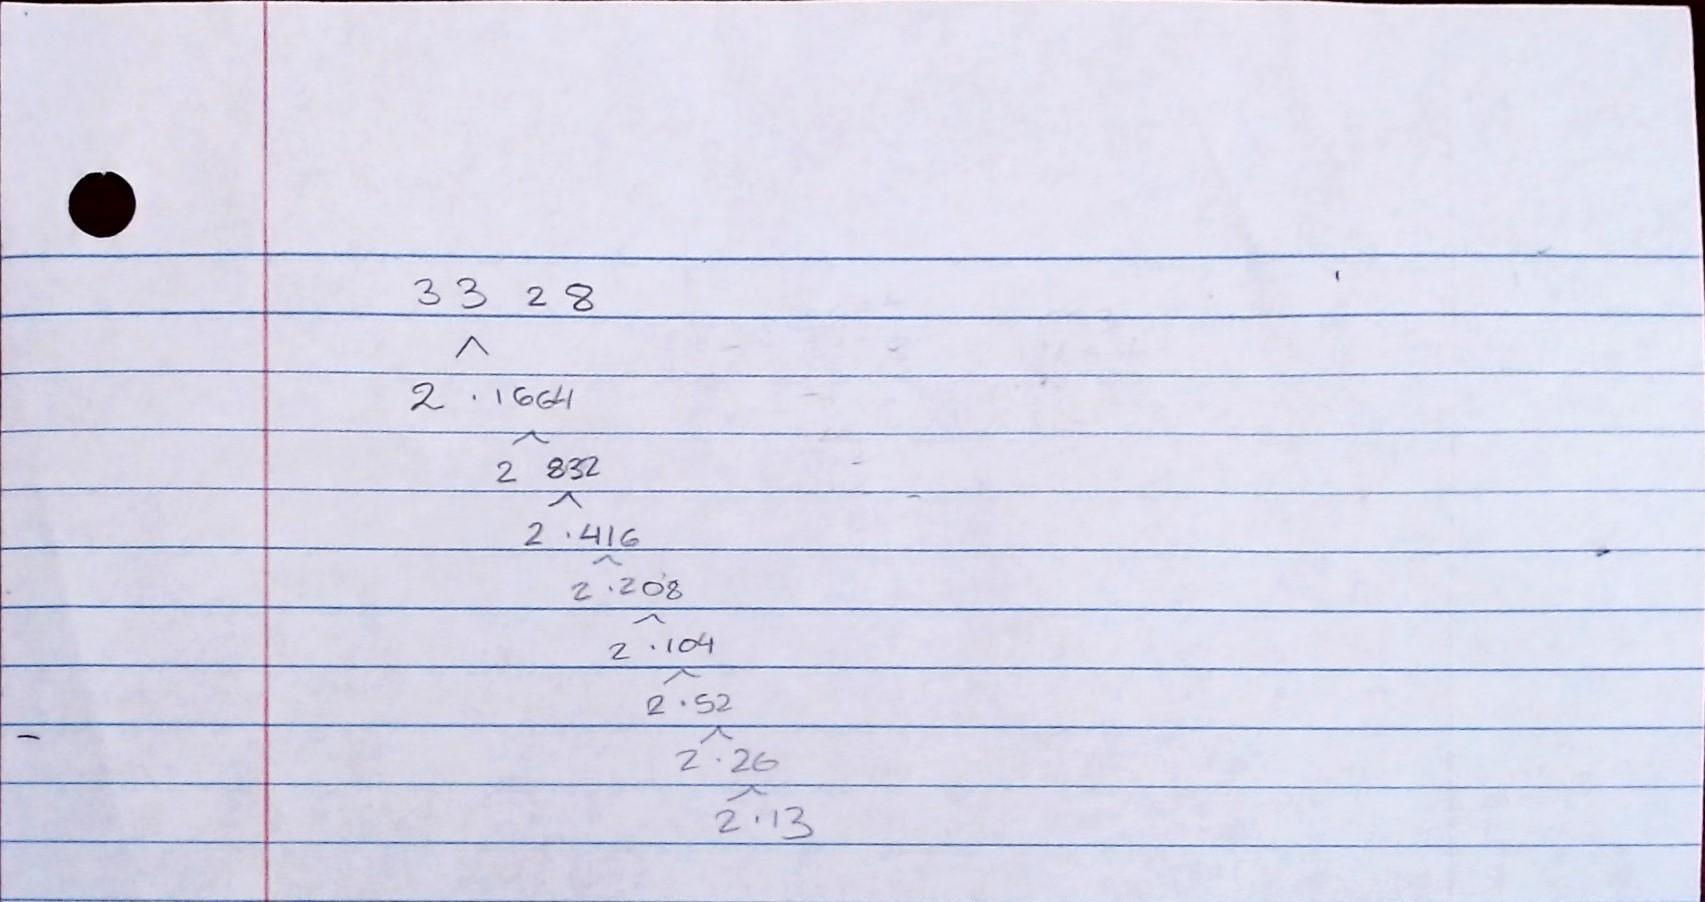 3 3 2 8
^
2 . 1664
^
2 832
^
2 . 416
^
2 . 208
^
2 . 104
^
2 . 52
^
2 . 26
^
2 . 13